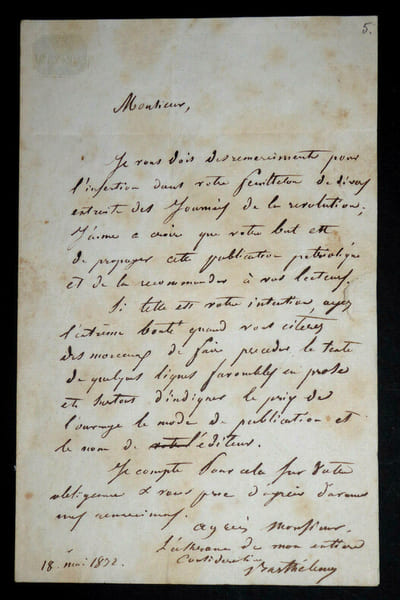 5.
Monsieur,
Je vous dois des remerciments pour
l'insertion dans votre feuilleton de divers
extraits des Journées de la révolution;
J'aime à croire que votre but est
de propager cette publication patriotique
et de la recommander à vos lecteurs.
Si telle est votre intention, ayez
l'extrême bonté quand vous citerez
des morceaux de faire précéder le texte
de quelques lignes favorables en prose
et surtout d'indiquer le prix de
l'ouvrage le mode de publication et
le nom de l'éditeur.
Je compte pour cela sur votre
obligeance & vous prie d'agréer d'avance
mes remerciments.
agréez Monsieur.
l'assurance de mon entière
Considération
18. mai 1832. Barthélemy